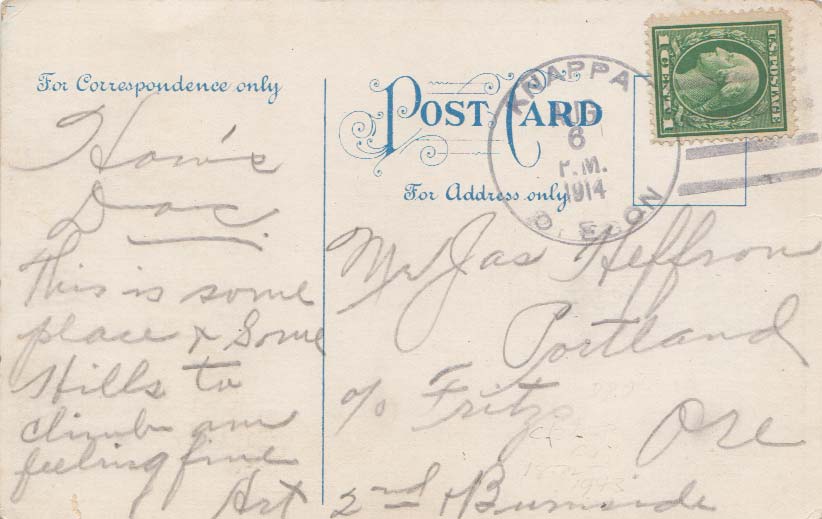 For Correspondence only
How's
Doc.
This is some
place & Some
Hills to
climb am
feeling fine
Art
POST CARD
For Address only
KNAPPA
AUG
6
P.M.
1914
OREGON
U.S. POSTAGE
1 CENT 1
Mr Jas Heffron
Portland
c/o Fritz
Ore
2nd & Burnside